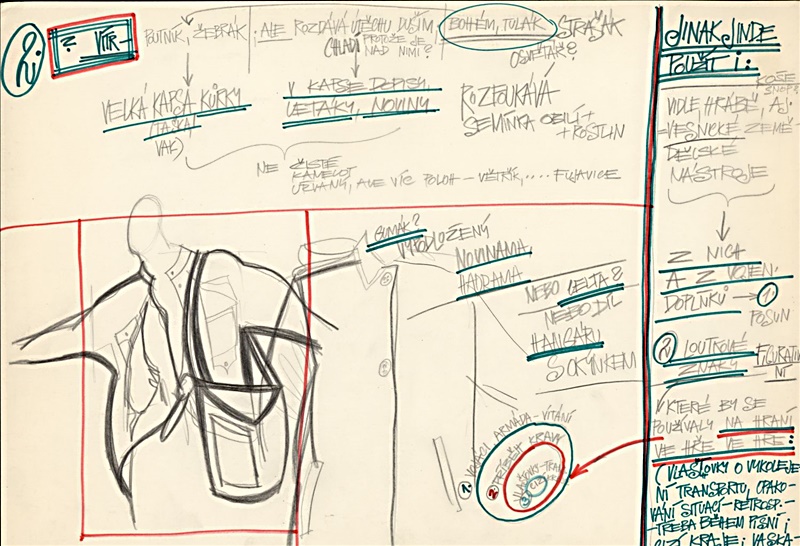 2.
? VÍTR-
POUTNÍK, ŽEBRÁK
VELKÁ KAPSA KŮRKY
(TAŠKA
VAK)
ALE ROZDÁVÁ ÚTĚCHU DUŠÍM,
CHLADÍ PROTOŽE JE
NAD NIMI?
V KAPSE DOPISY,
LETÁKY, NOVINY
BOHÉM, TULÁK
STRAŠÁK
OSVĚTÁŘ?
ROZFOUKÁVÁ
SEMÍNKA OBILÍ +
+ ROSTLIN
NE ČISTĚ
KAMELOT
URVANÝ, ALE VÍC POLOH - VĚTŘÍK, .... FUJAVICE
GUMÁK?
VYPODLOŽENÝ
NOVINAMA
HADRAMA
NEBO CELTA?
NEBO DÍL
HANGÁRU
S OKÝNKEM
1 ARMÁDA - VÍTÁNÍ
2 PŘÍBĚH KRÁVY
3
JINAK JINDE
POUŽÍT:
KOSE
VIDLE, HRÁBĚ, AJ.
VESNICKÉ ZEMĚ
DĚLSKÉ
NÁSTROJE
Z NICH
A Z VOJEN.
DOPLŇKŮ → 1
POSUN
2 LOUTKOVÉ FIGURATIV
ZNAKY NÍ
KTERÉ BY SE
POUŽÍVALY NA HRANÍ
VE HŘE VE HŘE:
(VLAŠTOVKY O VYKOLEJE
NÍ TRANSPORTU, OPAKO-
VÁNÍ SITUACÍ - RETROSP.-
- TŘEBA BĚHEM PÍSNÍ I
CIZÍ KRAJE; VASKA-